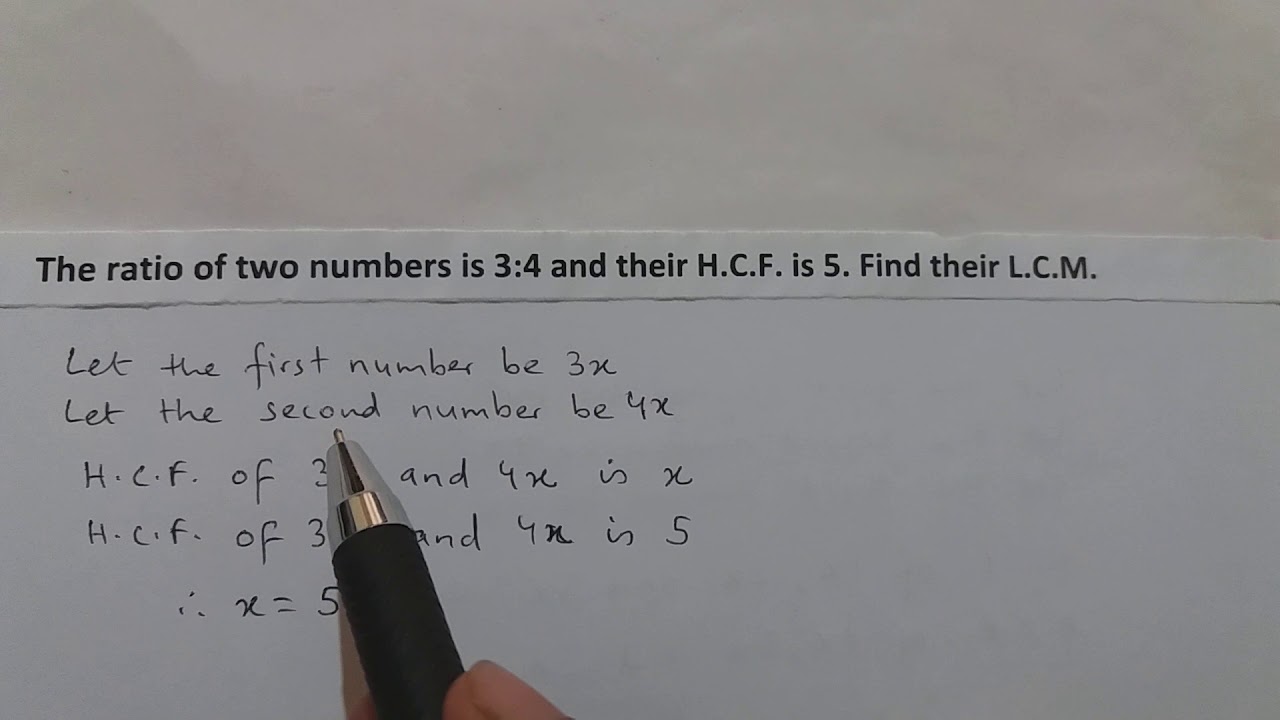 The ratio of two numbers is 3:4 and their H.C.F. is 5. Find their L.C.M.
Let the first number be 3x
Let the second number be 4x
H.C.F. of 3 and 4x is x
H.C.F. of 3 and 4x is 5
∴ x = 5